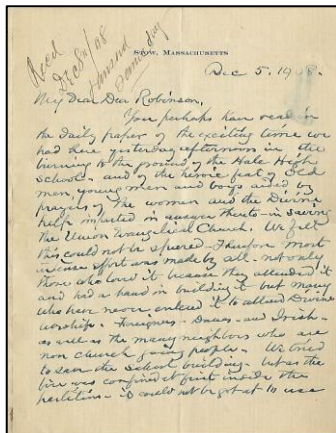 Recd
Dec 8/08
STOW, MASSACHUSETTS
Dec 5. 1908.
My Dear Dea Robinson,
You perhaps have read in
the daily paper of the exciting time we
had here yesterday afternoon in the
burning to the ground of the Hale High
School - and of the heroic feat of old
men, young men and boys aided by
prayers of the women and the Divine
help imparted in answer thereto - in saving
the Union Evangelical Church. We felt
this could not be spared - Therefore most
intense effort was made by all - not only
those who love it because they attended it
and had a hand in building it but many
who have never entered it to attend Divine
worship - Foreigners - Danes - and Irish -
as well as the many neighbors who are
non church going people - We tried
to save the school building - but as the
fire was confined at first inside the
partitions - it could not be got at to use